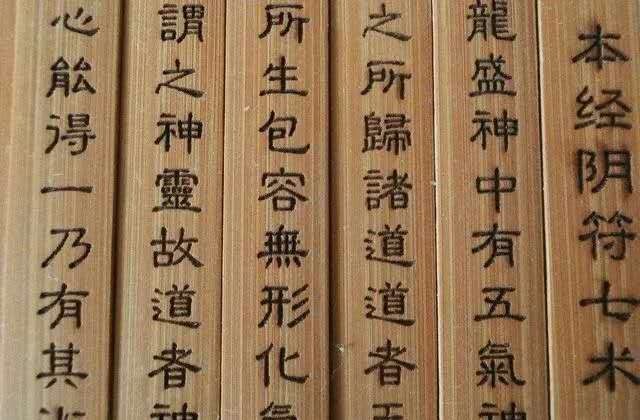 本经阴符七术
龍盛神中有五氣神
之所歸諸道道者天
所生包容無形化氣
謂之神靈故道者神
心能得一乃有其